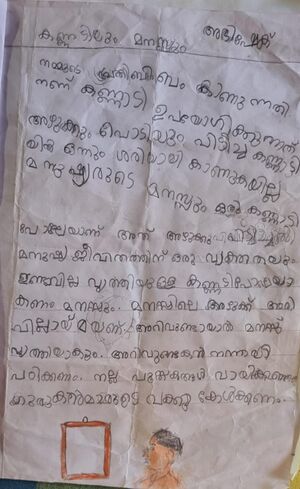 കണ്ണാടിയും മനസ്സും അഭിഷേക്
നമ്മുടെ പ്രതിബിംബം കാണുന്നതി
നാണ് കണ്ണാടി ഉപയോഗിക്കുന്നത്
അഴുക്കും പൊടിയും പിടിച്ച കണ്ണാടി
യിൽ ഒന്നും ശരിയായി കാണുകയില്ല
മനുഷ്യരുടെ മനസ്സും ഒരു കണ്ണാടി
പോലെയാണ് അത് അഴുക്കു പിടിച്ചാൽ
മനുഷ്യ ജീവിതത്തിന് ഒരു വ്യക്തതയും
ഉണ്ടാവില്ല വൃത്തിയുള്ള കണ്ണടിപോലെയാ
കണം മനസ്സും. മനസ്സിലെ അഴുക്ക് അറി
വില്ലായ്മയാണ്. അറിവുണ്ടായാൽ മനസ്സ്
വൃത്തിയാകും. അറിവുണ്ടാകാൻ നന്നായി
പഠിക്കണം. നല്ല പുസ്തകങ്ങൾ വായിക്കണം
ഗുരുകന്മാരുടെ വാക്കു കേൾക്കണം.